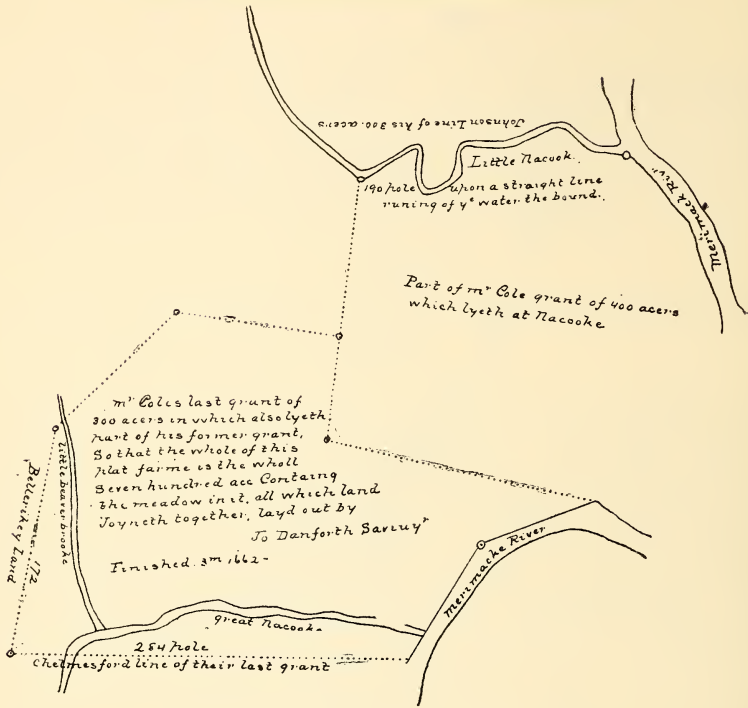 Johnson Line of his 300. acers
Little Nacook.
190 pole upon a straight line
runing of yᵉ water the bound.
Merimack River
Part of mʳ Cole grant of 400 acers
which lyeth at Nacooke
mʳ Coles last grunt of
300 acers in which also lyeth
part of his former grant,
So that the whole of this
plat farme is the wholl
Seven hundred acc Containg
the meadow in it, all which land
Joyneth together, layd out by
Jo Danforth Saviuyʳ
Finished. 3m 1662-
little beaver brooke
Bellerikey Land
172
Merimacke River
great Nacook
284 pole
Chelmesford line of their last grant